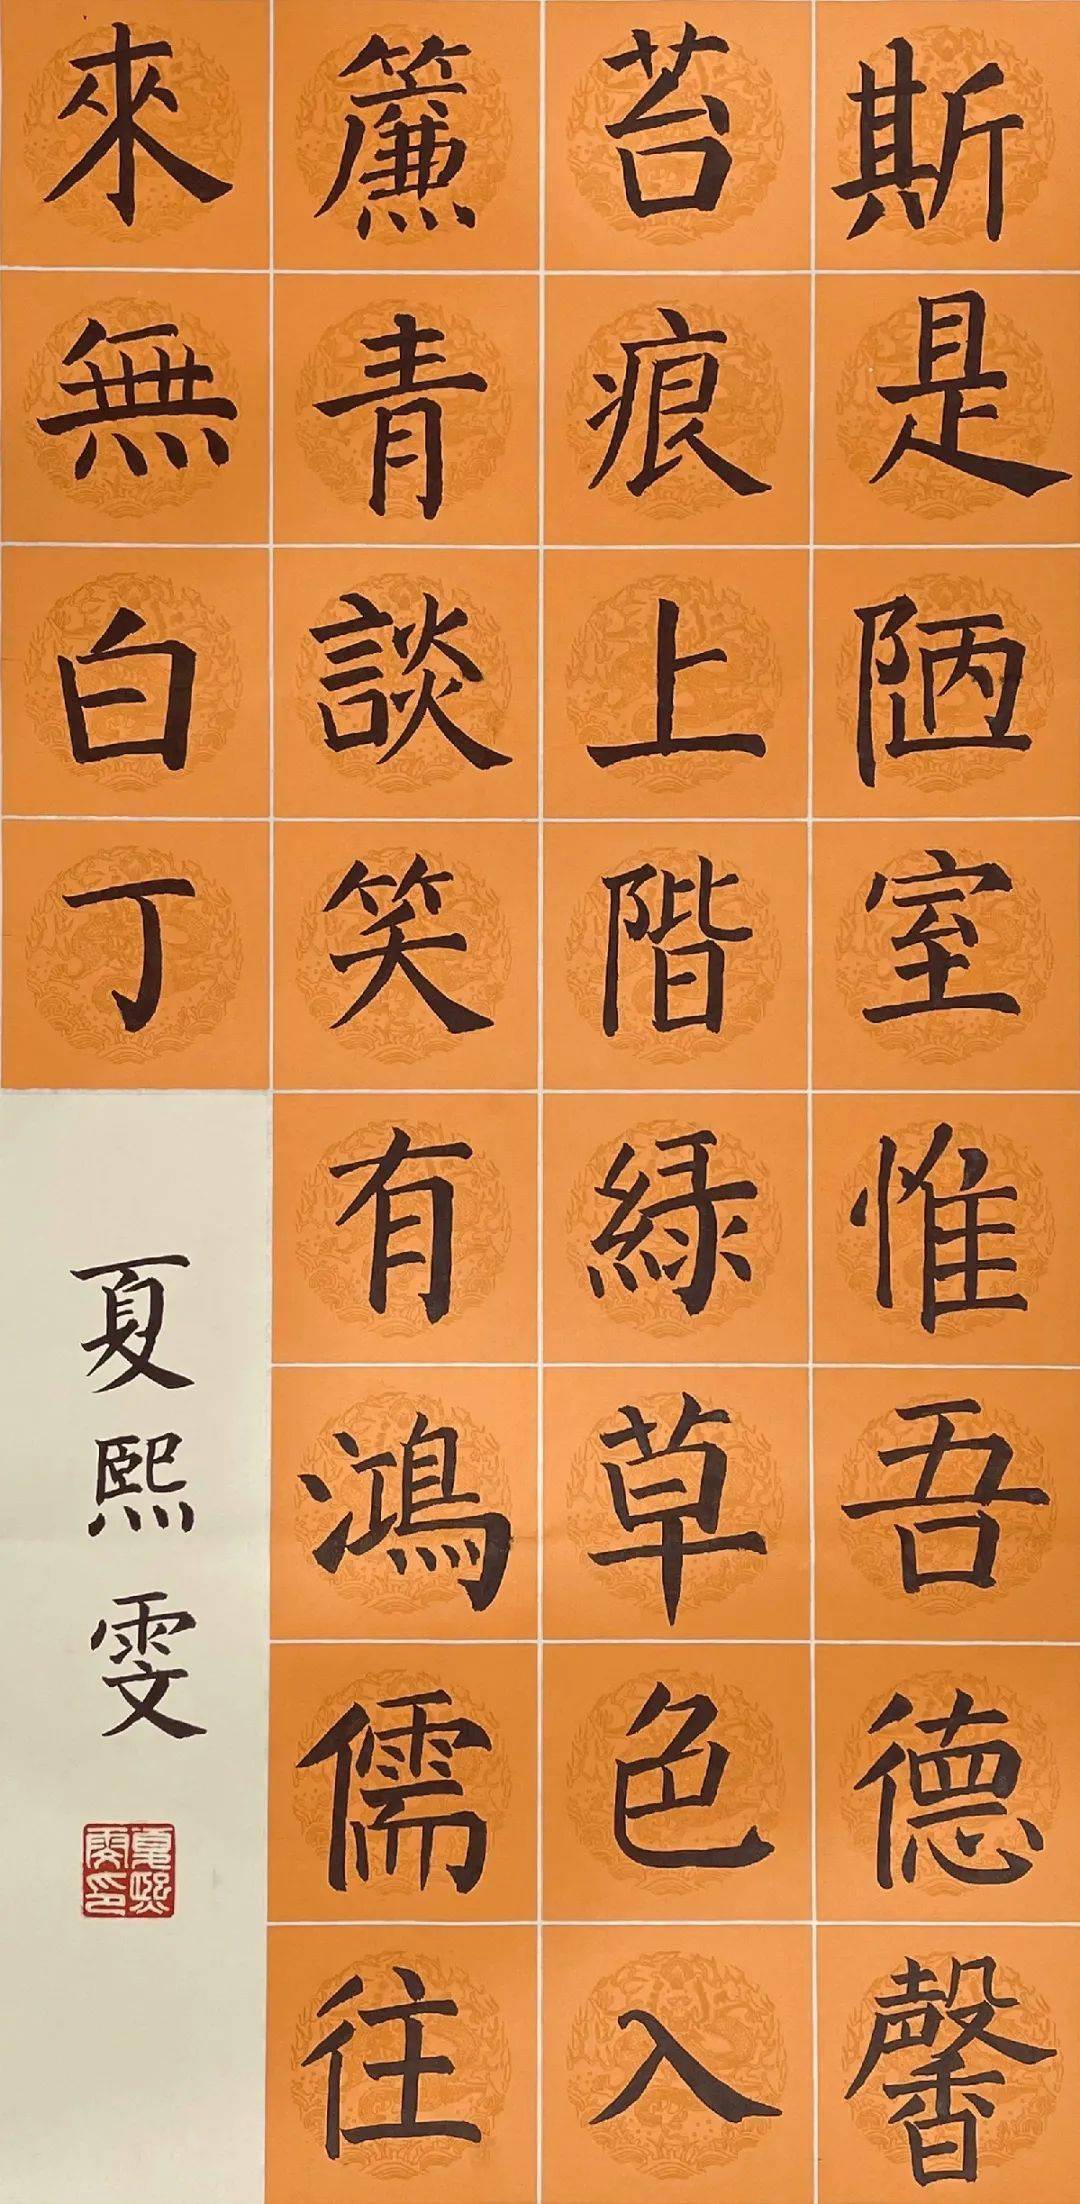 斯是陋室惟吾德馨
苔痕上階緑草色入
簾青談笑有鴻儒往
來無白丁
夏熙雯
夏熙雯印